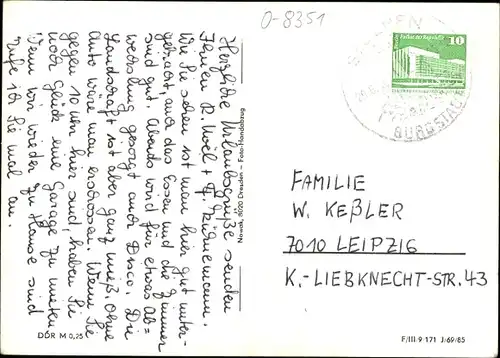 O-8351
Herzliche Urlaubsgrüße senden
Ihnen R. Noël +
Wie Sie sehen ist man hier gut unter-
gebracht, auch das Essen und die Zimmer
sind gut. Abends wird für etwas Ab=
wechslung gesorgt auch Disco. Die
Landschaft ist aber ganz nett. Ohne
Auto wäre man erschossen. Wenn Sie
gegen 10 Uhr hier sind, haben Sie
noch Glück eine Garage zu mieten
Wenn wir wieder zu Hause sind
rufe ich Sie mal an.
Nowak, 8020 Dresden – Foto-Handabzug
DDR M 0,25
10
BURGSTÄDT
FAMILIE
W. KEßLER
7010 LEIPZIG
K.-LIEBKNECHT-STR. 43
F/III-9-171 J/69/85